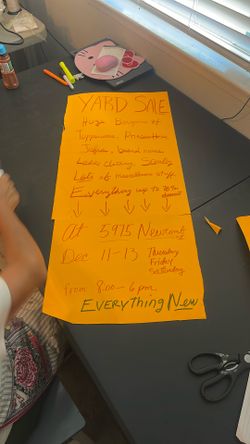 YARD SALE
Huge Bargains of
Tupperware, Princess House
Jafra, brand name
Ladies Clothing, Stanley
Lots of miscellaneous stuff.
Everything up to 70%
At 5975 Newcomb
Dec 11-13 Thursday
Friday
Saturday
From 8:00 - 6 pm
EVERYTHING NEW